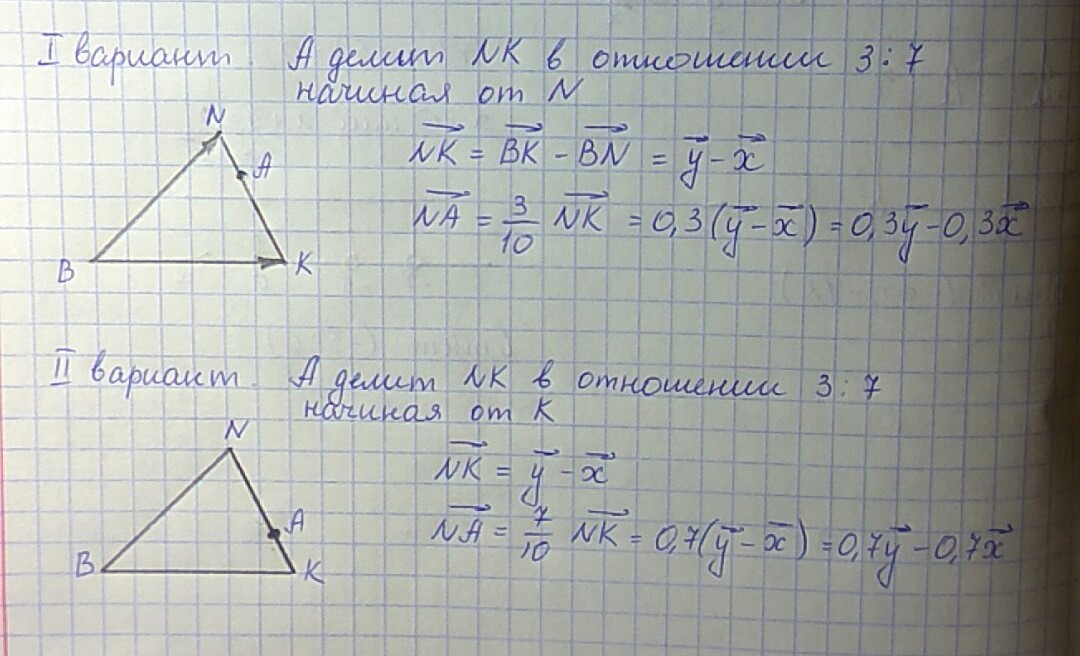 I вариант. А делит NK в отношении 3:7
начиная от N
N
A
B
K
NK = BK - BN = y - x
NA = 3/10 NK = 0,3(y - x) = 0,3y - 0,3x
II вариант. А делит NK в отношении 3:7
начиная от K
N
A
B
K
NK = y - x
NA = 7/10 NK = 0,7(y - x) = 0,7y - 0,7x